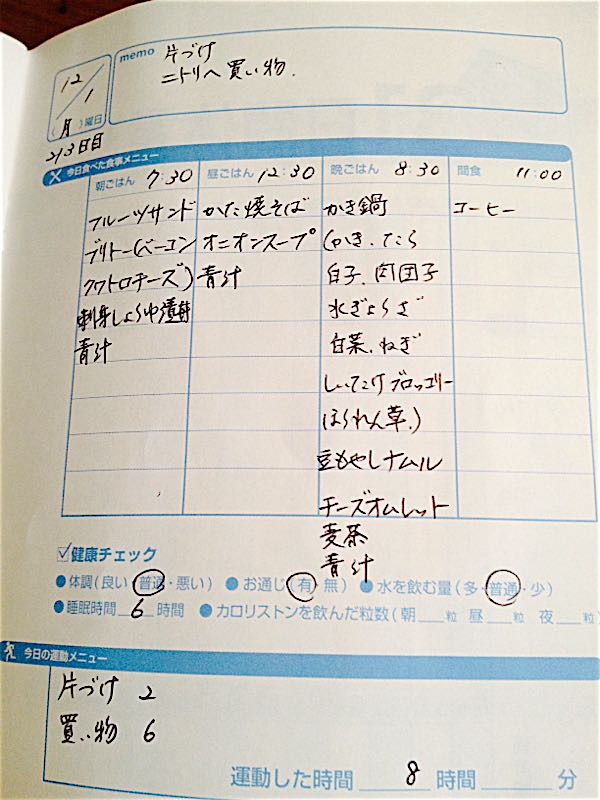 memo 片づけ
ニトリへ買い物.
12/1
(月)曜日
213日目
今日食べた食事メニュー
朝ごはん 7:30 昼ごはん 12:30 晩ごはん 8:30 間食 11:00
フルーツサンド かた焼そば かき鍋 コーヒー
ブリトー(ベーコン オニオンスープ (かき.たら
クワトロチーズ) 青汁 白子.肉団子
刺身しょうゆ漬丼 水ぎょうざ
青汁 白菜.ねぎ
しいたけブロッコリー
ほうれん草.)
豆もやしナムル
チーズオムレット
麦茶
青汁
健康チェック
●体調(良い・普通・悪い) ●お通じ(有・無) ●水を飲む量(多・普通・少)
●睡眠時間 6 時間 ●カロリストンを飲んだ粒数(朝 粒 昼 粒 夜 粒)
今日の運動メニュー
片づけ 2
買い物 6
運動した時間 8 時間 分